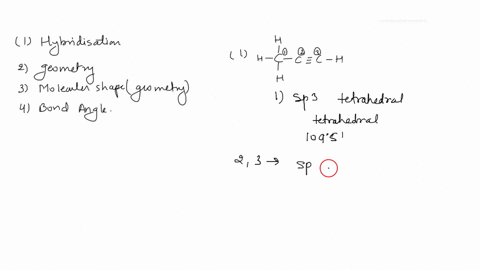 (1) Hybridisation
2) geometry
3) Molecular shape (geometry)
4) Bond Angle.
H
(1) H-C①-C②≡C③-H
H
1) sp3 tetrahedral
tetrahedral
109°5'
2,3 → sp